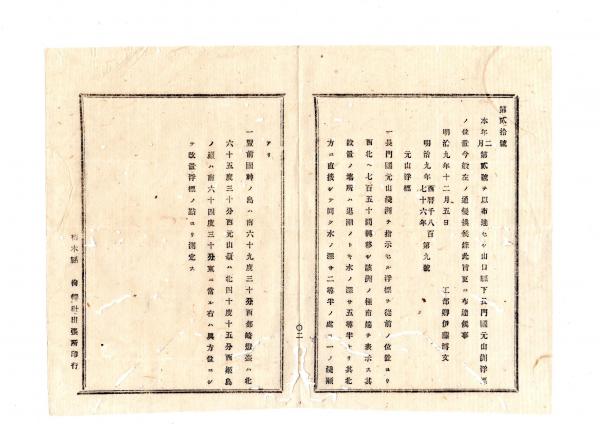 第貳拾號
本年二月第貳號ヲ以布達セル山口縣下長門國元山洲浮標
ノ位置今般左ノ通變換候條此旨更ニ布達候事
明治九年十二月五日　工部卿伊藤博文
明治九年西暦千八百七十六年第九號
元山浮標
一長門國元山淺洲ヲ指示セル浮標ヲ從前ノ位置ヨリ
西北ヘ七百五十間轉移シ該洲ノ極南端ヲ表示ス其
放置ノ場所ハ退潮ノトキ水ノ深サ五尋半ナリ其北
方ニ直接シテ同ク水ノ深サ二尋半ノ處ニ一ノ淺洲
アリ
一豐前國蒔ノ島ハ南六十九度三十分西部崎燈臺ハ北
六十五度三十分西元山嶽ハ北四十度十五分西姫島
ノ嶽ハ南六十四度三十分東ニ當ル右ハ眞方位ニシ
テ放置浮標ノ點ヨリ測定ス
栃木縣　社出張所印行
〇二